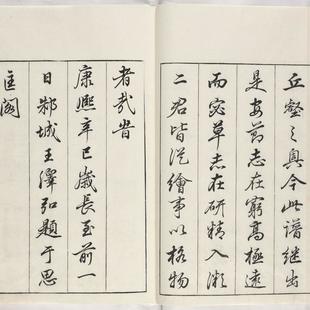 丘壑之奥今此譜繼出
是安節志在窮高極遠
而宓草志在研精入微
二君皆從繪事以格物
者哉旹
康熙辛巳歲長至前一
日邾城王澤弘題于思
匡閣